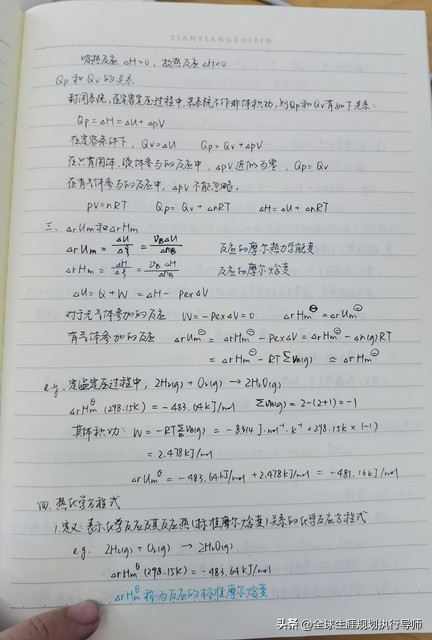 TIANXIANGZHIPIN
吸热反应 ΔH>0，放热反应 ΔH<0
Qp 和 Qv 的关系
封闭系统，在定容定压过程中，若系统不作非体积功，则Qp和Qv有如下关系：
Qp=ΔH=ΔU+ΔpV
在定容条件下，Qv=ΔU Qp=Qv+ΔpV
在只有固体、液体参与的反应中，ΔpV近似为零，Qp=Qv
在有气体参与的反应中，ΔpV不能忽略。
pV=nRT Qp=Qv+ΔnRT ΔH=ΔU+ΔnRT
三、ΔrUm和ΔrHm
ΔrUm=ΔU/Δξ=νBΔU/ΔnB 反应的摩尔热力学能变
ΔrHm=ΔH/Δξ=νBΔH/ΔnB 反应的摩尔焓变
ΔU=Q+W=ΔH-pexΔV
对于无气体参加的反应 W=-pexΔV=0 ΔrHm⊖=ΔrUm⊖
有气体参加的反应 ΔrUm⊖=ΔrHm⊖-pexΔV=ΔrHm⊖-Δn(g)RT
=ΔrHm⊖-RTΣνB(g) ≈ΔrHm⊖
e.g. 定温定压过程中，2H₂(g)+O₂(g)→2H₂O(g)
ΔrHm⊖(298.15K)=-483.64kJ/mol ΣνB(g)=2-(2+1)=-1
其体积功：W=-RTΣνB(g)=-8.314 J·mol⁻¹·K⁻¹×298.15K×(-1)
=2.478kJ/mol
ΔrUm⊖=-483.64kJ/mol+2.478kJ/mol=-481.16kJ/mol
四、热化学方程式
1.定义：表示化学反应及其反应热(标准摩尔焓变)关系的化学反应方程式
e.g. 2H₂(g)+O₂(g)→2H₂O(g)
ΔrHm⊖(298.15K)=-483.64kJ/mol
ΔrHm⊖称为反应的标准摩尔焓变
头条@全球生涯规划执行导师